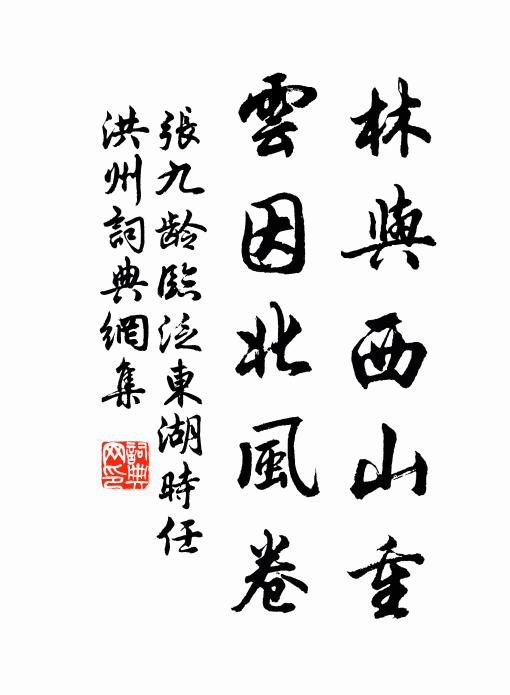 林與西山重
雲因北風卷
張九龄臨泛東湖時任
洪州詞典網集
詞典
网印